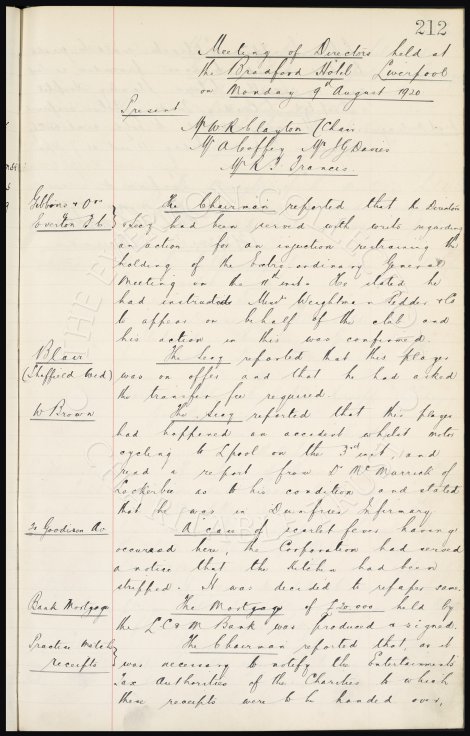 212
Meeting of Directors held at
the Bradford Hotel Liverpool
on Monday 9th August 1920
Present
Mr W R Clayton (Chair
Mr A Coffey Mr J G Davies
Mr R J Francis.
Gibbons & Ors
Everton F.C.
The Chairman reported that the Directors
& Secy had been served with writs regarding
an action for an injuction restraining the
holding of the Extra-ordinary General
Meeting on the 11th inst. He stated he
had instructed Messrs Weightman Pedder & Co
to appear on behalf of the club and
his action in this was confirmed.
Blair
(Sheffield Wed)
The Secy reported that this player
was on offer and that he had asked
the transfer fee required.
W Brown
The Secy reported that this player
had happened an accident whilst motor
cycling to L'pool on the 3rd inst, and
read a report from Dr McMurrich of
Lockerbie as to his condition and stated
that he was in Dumfries Infirmary.
Goodison Av.
A case of scarlet fever having
occurred here, the Corporation had served
a notice that the Kitchen had been
stripped. It was decided to repaper same.
Bank Mortgage
The Mortgage of £20,000 held by
the L C & M Bank was produced & signed.
Practice Match
receipts
The Chairman reported that, as it
was necessary to notify the Entertainments
Tax Authorities of the Charities to which
these receipts were to be handed over,